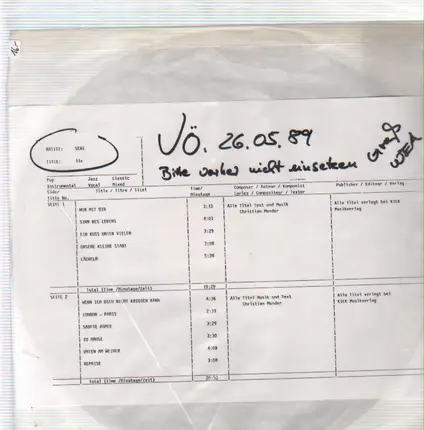 16,-
VÖ. 26.05.89
Bitte vorher nicht einsetzen
Gruß
ARTIST:
TITLE:
Pop Jazz Classic
Instrumental Vocal Mixed
Side/ Title / titre / titel
Title No.
Time/ Minutage
Composer / Auteur / Komponist
Lyrics / Compositeur / Texter
Publisher / Editeur / Verlag
SEITE 1
NUR MIT DIR 3:35 Alle Titel Text und Musik Alle Titel verlegt bei KICK
Christian Munder Musikverlag
SINN DES LEBENS 4:03
EIN KUSS UNTER VIELEN 3:29
UNSERE KLEINE STADT
LÄCHELN
Total (time /Minutage/Zeit) 19:29
SEITE 2
WENN ICH DICH NICHT KRIEGEN KANN 4:36 Alle Titel Musik und Text Alle Titel verlegt bei
Christian Munder KICK Musikverlag
LONDON - PARIS
SANFTE ARMEE 3:29
ZU HAUSE 3:30
UNTEN AM WEIHER 4:00
REPRISE
Total (time /Minutage/Zeit)